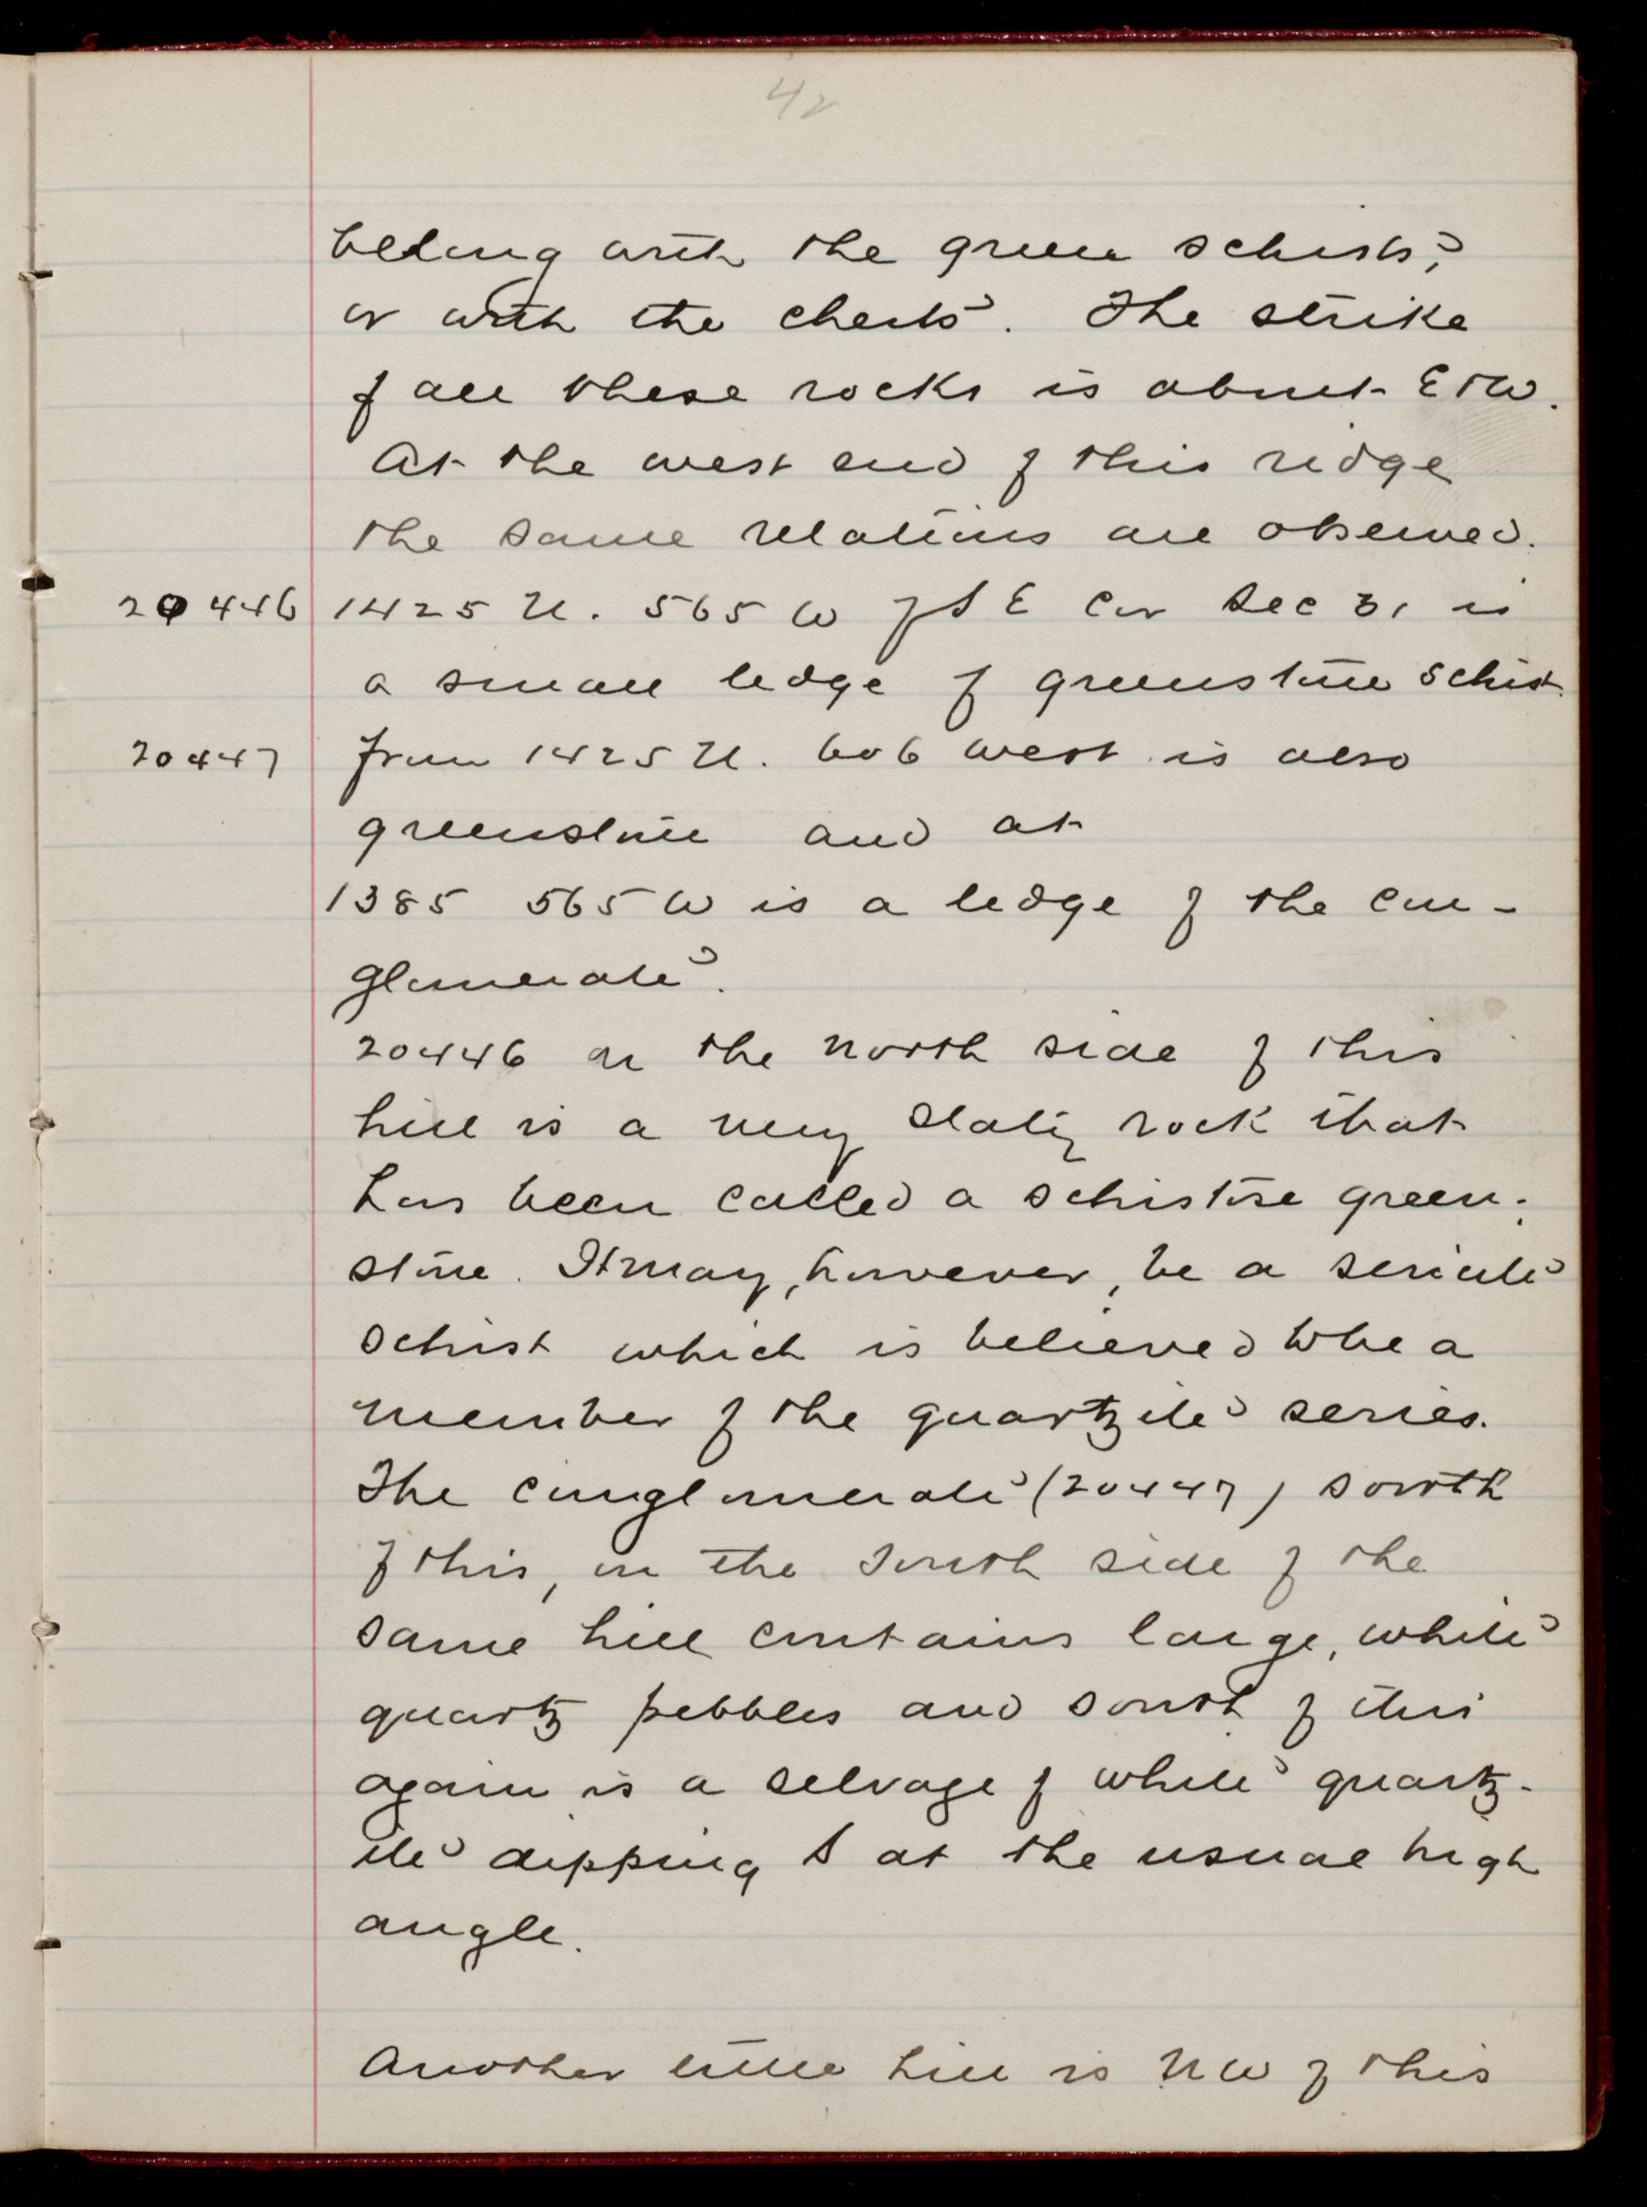 42
belong with the green schists,
or with the cherts. The strike
of all these rocks is about E + W.
At the west end of this ridge
the same relations are observed.
20446 1425 N. 565 W of S E Cor Sec 31 is
a small ledge of greenstone schist.
20447 from 1425 N. 606 west is also
greenstone and at
1385 565 W is a ledge of the con-
glomerate.
20446 on the north side of this
hill is a very slaty rock that
has been called a schistose green-
stone. It may, however, be a sericite
schist which is believed to be a
member of the quartzite series.
The conglomerate (20447) south
of this, on the south side of the
same hill contains large, white
quartz pebbles and south of this
again is a selvage of white quartz-
ite dipping S at the usual high
angle.
Another little hill is NW of this